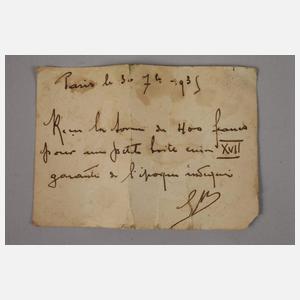 Paris le 30 7bre 1935
Reçu la somme de 400 francs
pour une petite boite cuir XVII
garantie de l'époque indiquée